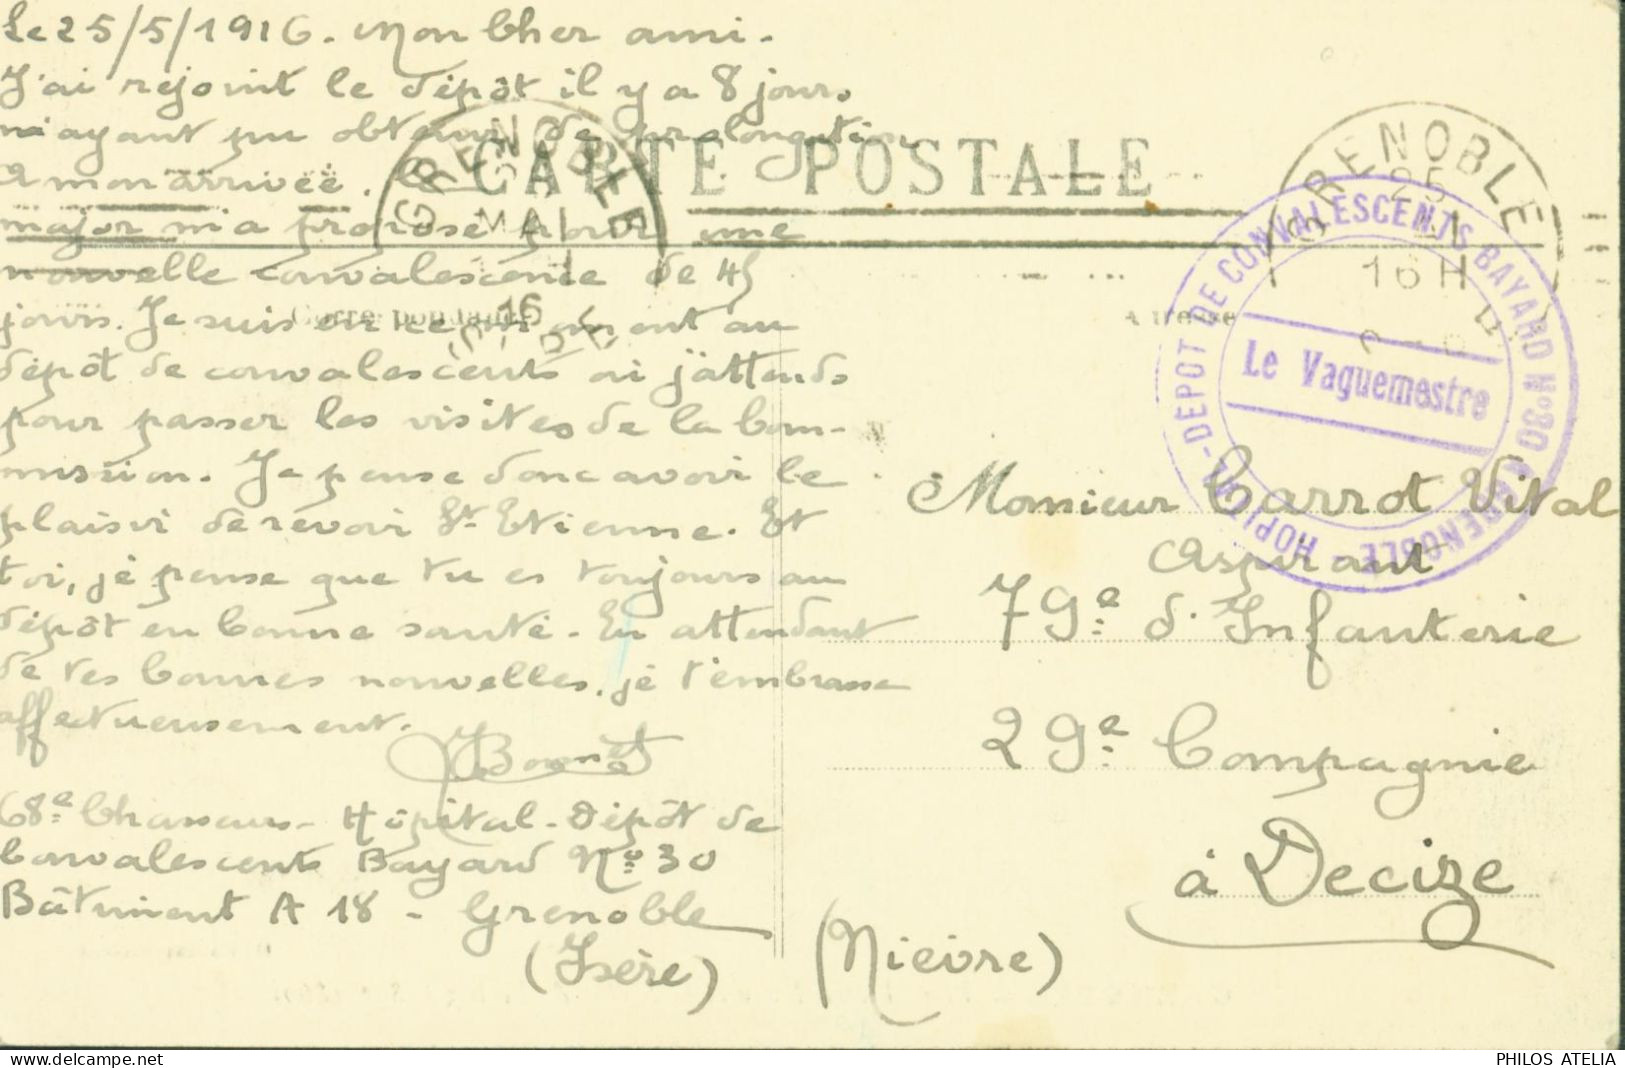 Le 25/5/1916. Mon Cher ami.
J'ai rejoint le dépôt il y a 8 jours
n'ayant pu obtenir de prolongation
A mon arrivée. le
major m'a proposé pour une
nouvelle convalescence de 45
jours. Je suis en ce moment au
dépôt de convalescents où j'attends
pour passer les visites de la Com-
mission. Je pense donc avoir le
plaisir de revoir St. Etienne. Et
toi, je pense que tu es toujours au
dépôt en bonne santé. En attendant
de tes bonnes nouvelles, je t'embrasse
affectueusement.
Bonnet
68e Chasseurs - Hôpital - Dépôt de
Convalescents Bayard No 30
Bâtiment A 18 - Grenoble
(Isère)
CARTE POSTALE
Correspondance
Adresse
GRENOBLE
MAI
16
GRENOBLE
25
16H
HOPITAL-DEPOT DE CONVALESCENTS BAYARD No 30 GRENOBLE
Le Vaguemestre
Monsieur Carrot Vital
Aspirant
79e d'Infanterie
29e Compagnie
à Decize
(Nièvre)
PHILOS ATELIA
www.delcampe.net